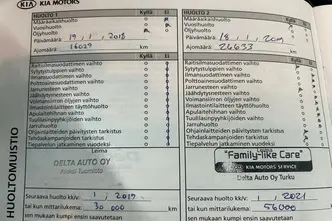 KIA KIA MOTORS
HUOLTO 1 Kyllä Ei
Määräaikaishuolto
Vuosihuolto
Öljyhuolto
Päivämäärä
Ajomäärä 16029 km
Raitisilmasuodattimen vaihto
Sytytystulppien vaihto
Polttoainesuodattimen vaihto
Jarrunesteen vaihto
Jäähdytysnesteen vaihto
Voimansiirron öljyjen vaihto
Ilmansuodattimen vaihto
Ilmastointilaitteen täyttö
Apulaitehihnan vaihto
Tuulilasinpyyhkijöiden vaihto
Jakohihnan vaihto
Ohjainlaitteiden päivitysten tarkistus
Tehdaskampanjoiden tarkistus
Tiepalvelun jatkaminen vuodeksi
Leima
DELTA AUTO OY
Seuraava huolto kk/v: 1 / 2019
tai kun mittarilukema: 30 000 km
sen mukaan kumpi ensin saavutetaan
HUOLTO 2 Kyllä Ei
Määräaikaishuolto
Vuosihuolto
Öljyhuolto
Päivämäärä
Ajomäärä 26633 km
Raitisilmasuodattimen vaihto
Sytytystulppien vaihto
Polttoainesuodattimen vaihto
Jarrunesteen vaihto
Jäähdytysnesteen vaihto
Voimansiirron öljyjen vaihto
Ilmansuodattimen vaihto
Ilmastointilaitteen täyttö
Apulaitehihnan vaihto
Tuulilasinpyyhkijöiden vaihto
Jakohihnan vaihto
Ohjainlaitteiden päivitysten tarkistus
Tehdaskampanjoiden tarkistus
Tiepalvelun jatkaminen vuodeksi
Leima
"Family-like Care"
KIA MOTORS SERVICE
Delta Auto Oy Turku
Seuraava huolto kk/v: 1 / 2021
tai kun mittarilukema: 56000 km
sen mukaan kumpi ensin saavutetaan
HUOLTOMUISTIO